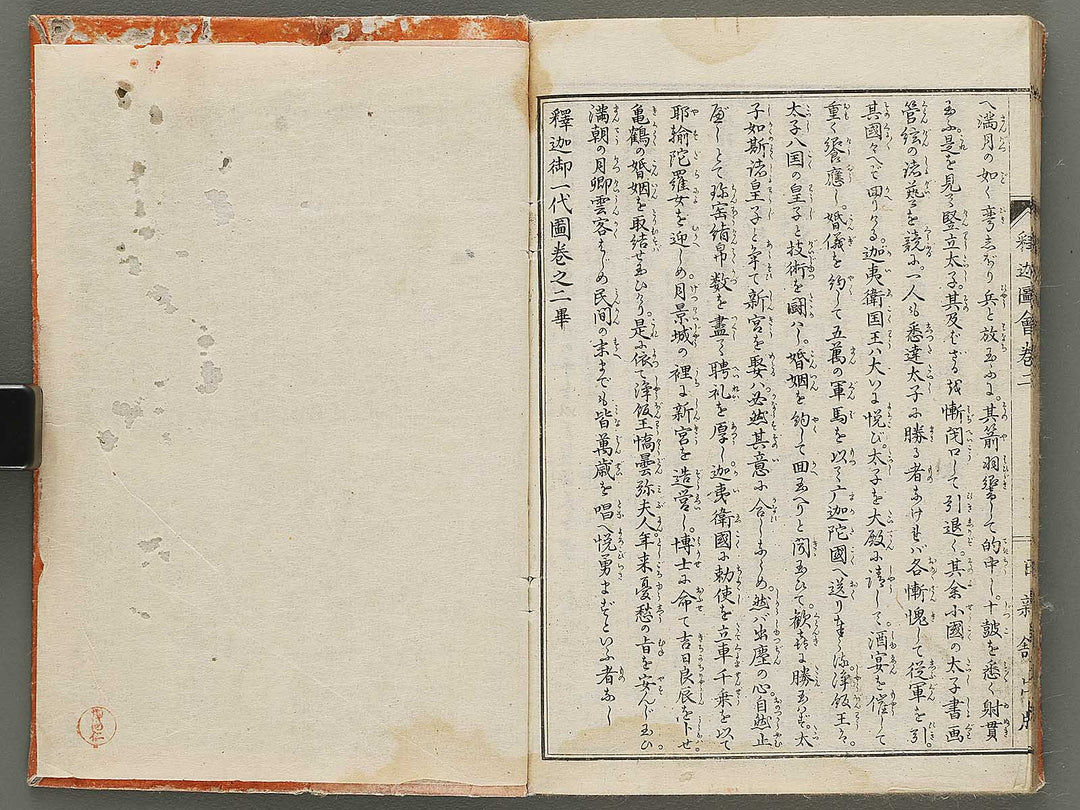 釋迦圖會卷二
へ満月の如く弯きしぼり兵と放玉ふに。其箭羽響して的中し。十皷を悉く射貫
玉ふ。是を見て竪立太子。其及ばざるを慚閉口して引退く。其余小國の太子書画
管絃の諸藝を競ふに。一人も悉達太子に勝る者なければ各慚愧して従軍を引。
其國々へぞ回りける。迦夷衛国王ハ大いに悦び。太子を大殿に請して。酒宴を催して
重く饗應し。婚儀を約して五萬の軍馬を以て摩迦陀國へ送りまゐらす。浄飯王ハ。
太子八国の皇子と技術を闘ハし。婚姻を約して回玉へりと聞玉ひて。歓喜に勝玉ハず。太
子如斯諸皇子と争て新宮を娶ハ。必然其意に合しならめ。然バ出塵の心。自然止
べしとて。珎宝絹帛数を盡て聘礼を厚し。迦夷衛國に勅使を立車千乗を以て
耶輸陀羅女を迎しめ。月景城の裡に新宮を造営し。博士に命て吉日良辰を卜せ
亀鶴の婚姻を取結せ玉ひけり。是に依て浄飯王憍曇弥夫人。年来憂愁の旨を安んじ玉ひ
満朝の月卿雲客はじめ民間の末までも皆萬歳を唱へ悦勇まずといふ者なし
釋迦御一代圖卷之二畢